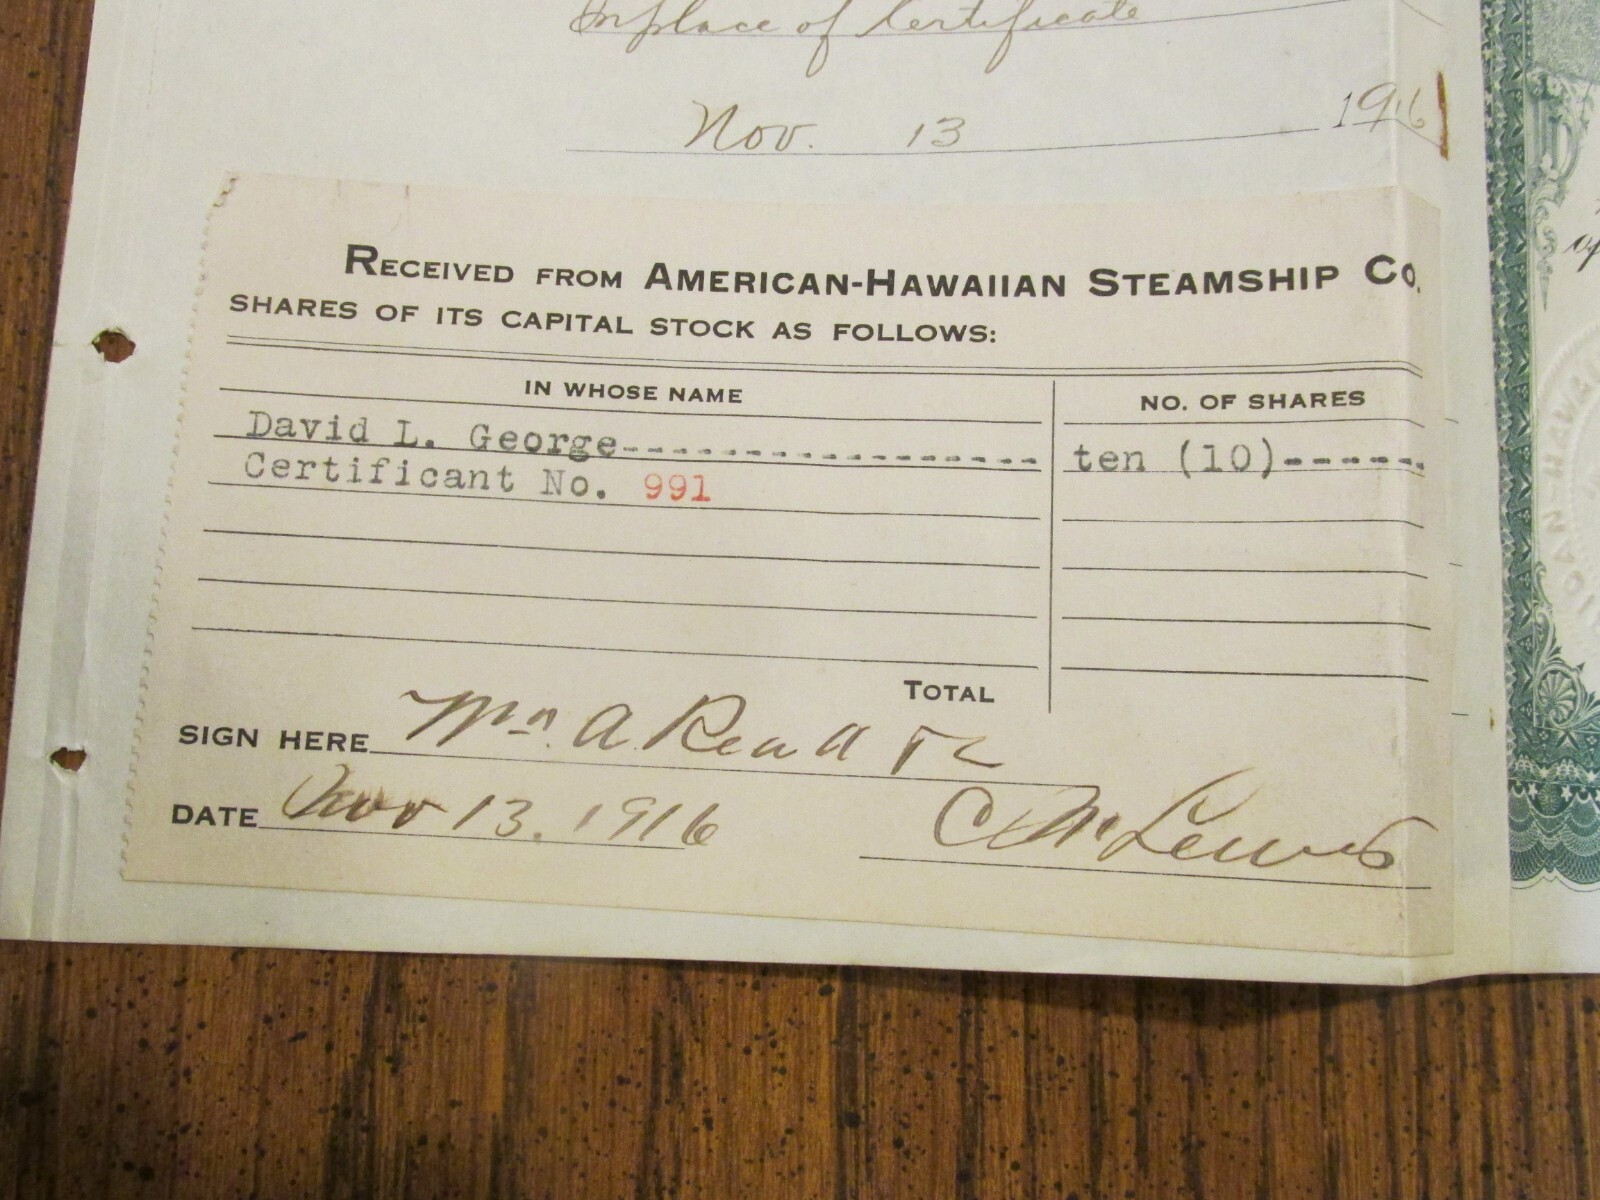 In place of Certificate
Nov. 13 1916
RECEIVED FROM AMERICAN-HAWAIIAN STEAMSHIP CO.
SHARES OF ITS CAPITAL STOCK AS FOLLOWS:
IN WHOSE NAME NO. OF SHARES
David L. George------------------ ten (10)------
Certificant No. 991
TOTAL
SIGN HERE Wm. A. Read
DATE Nov 13. 1916 Lewis